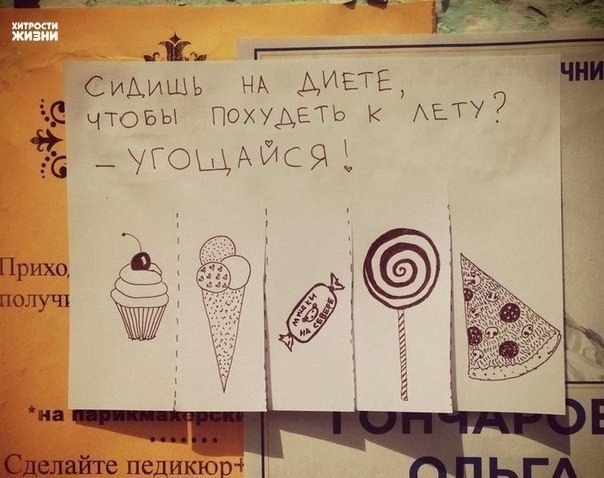 ХИТРОСТИ
ЖИЗНИ
СИДИШЬ НА ДИЕТЕ,
ЧТОБЫ ПОХУДЕТЬ К ЛЕТУ?
– УГОЩАЙСЯ!
МИШКИ
НА СЕВЕРЕ
ЧНИ
Прихо
получи
*на парикмахерски
Сделайте педикюр+
ГОНЧАРОВ
ОЛЬГА